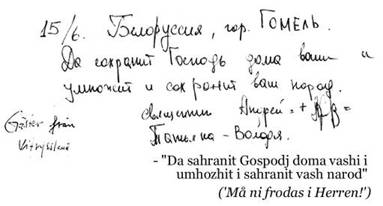 15/6. Белоруссия, гор. Гомель.
Да сохранит Господь дома ваши и
умножит и сохранит ваш народ.
священник Андрей =
Gäster från
Vitryssland
Татьяна - Володя.
- "Da sahranit Gospodj doma vashi i
umhozhit i sahranit vash narod"
('Må ni frodas i Herren!')